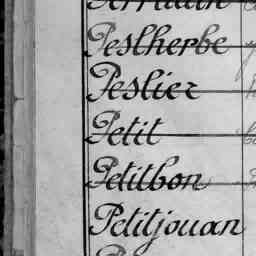 Peslherbe
Peslier
Petit
Petitbon
Petitjouan